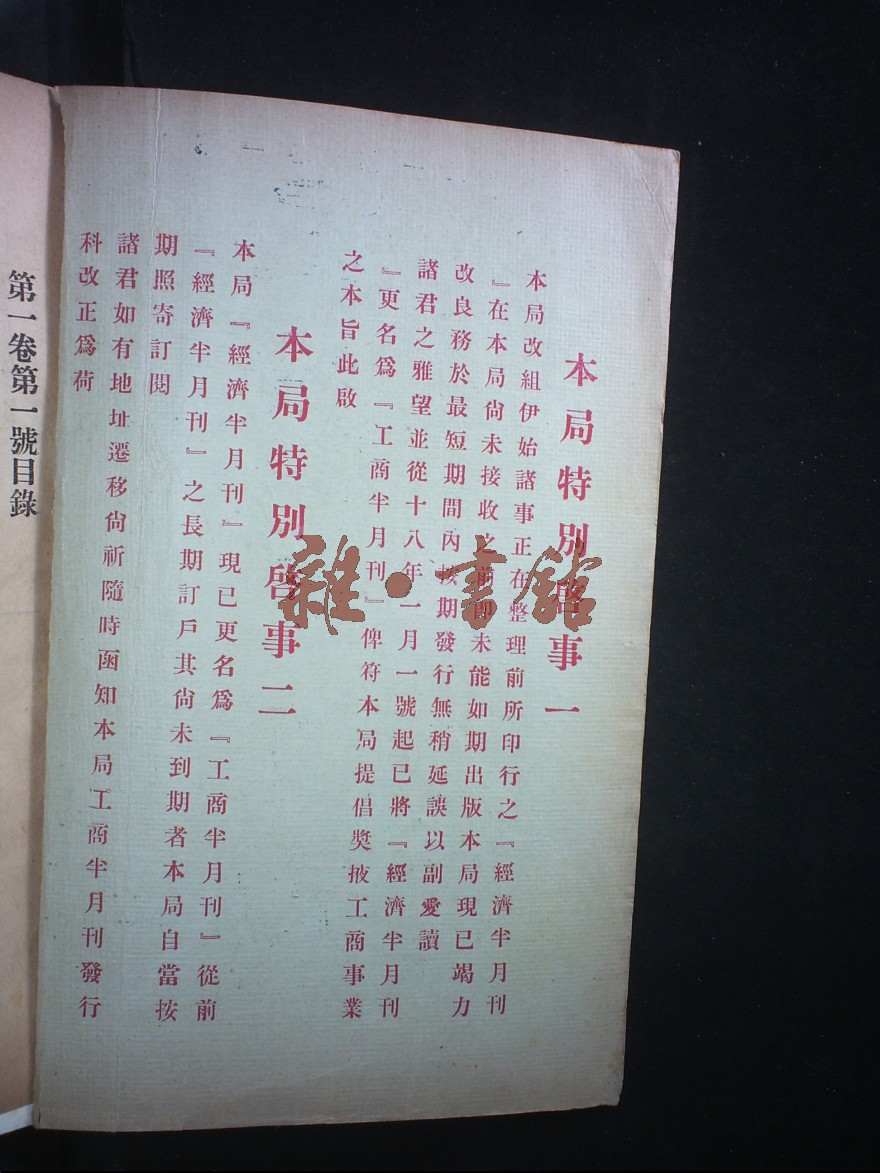 本局特別啓事一
本局改組伊始諸事正在整理前所印行之『經濟半月刊
』在本局尙未接收之前卽未能如期出版本局現已竭力
改良務於最短期間內按期發行無稍延誤以副愛讀
諸君之雅望並從十八年一月一號起已將『經濟半月刊
』更名爲『工商半月刊』俾符本局提倡奬掖工商事業
之本旨此啟
本局特別啓事二
本局『經濟半月刊』現已更名爲『工商半月刊』從前
『經濟半月刊』之長期訂戶其尙未到期者本局自當按
期照寄訂閱
諸君如有地址遷移尙祈隨時函知本局工商半月刊發行
科改正爲荷
第一卷第一號目錄
雜·書館